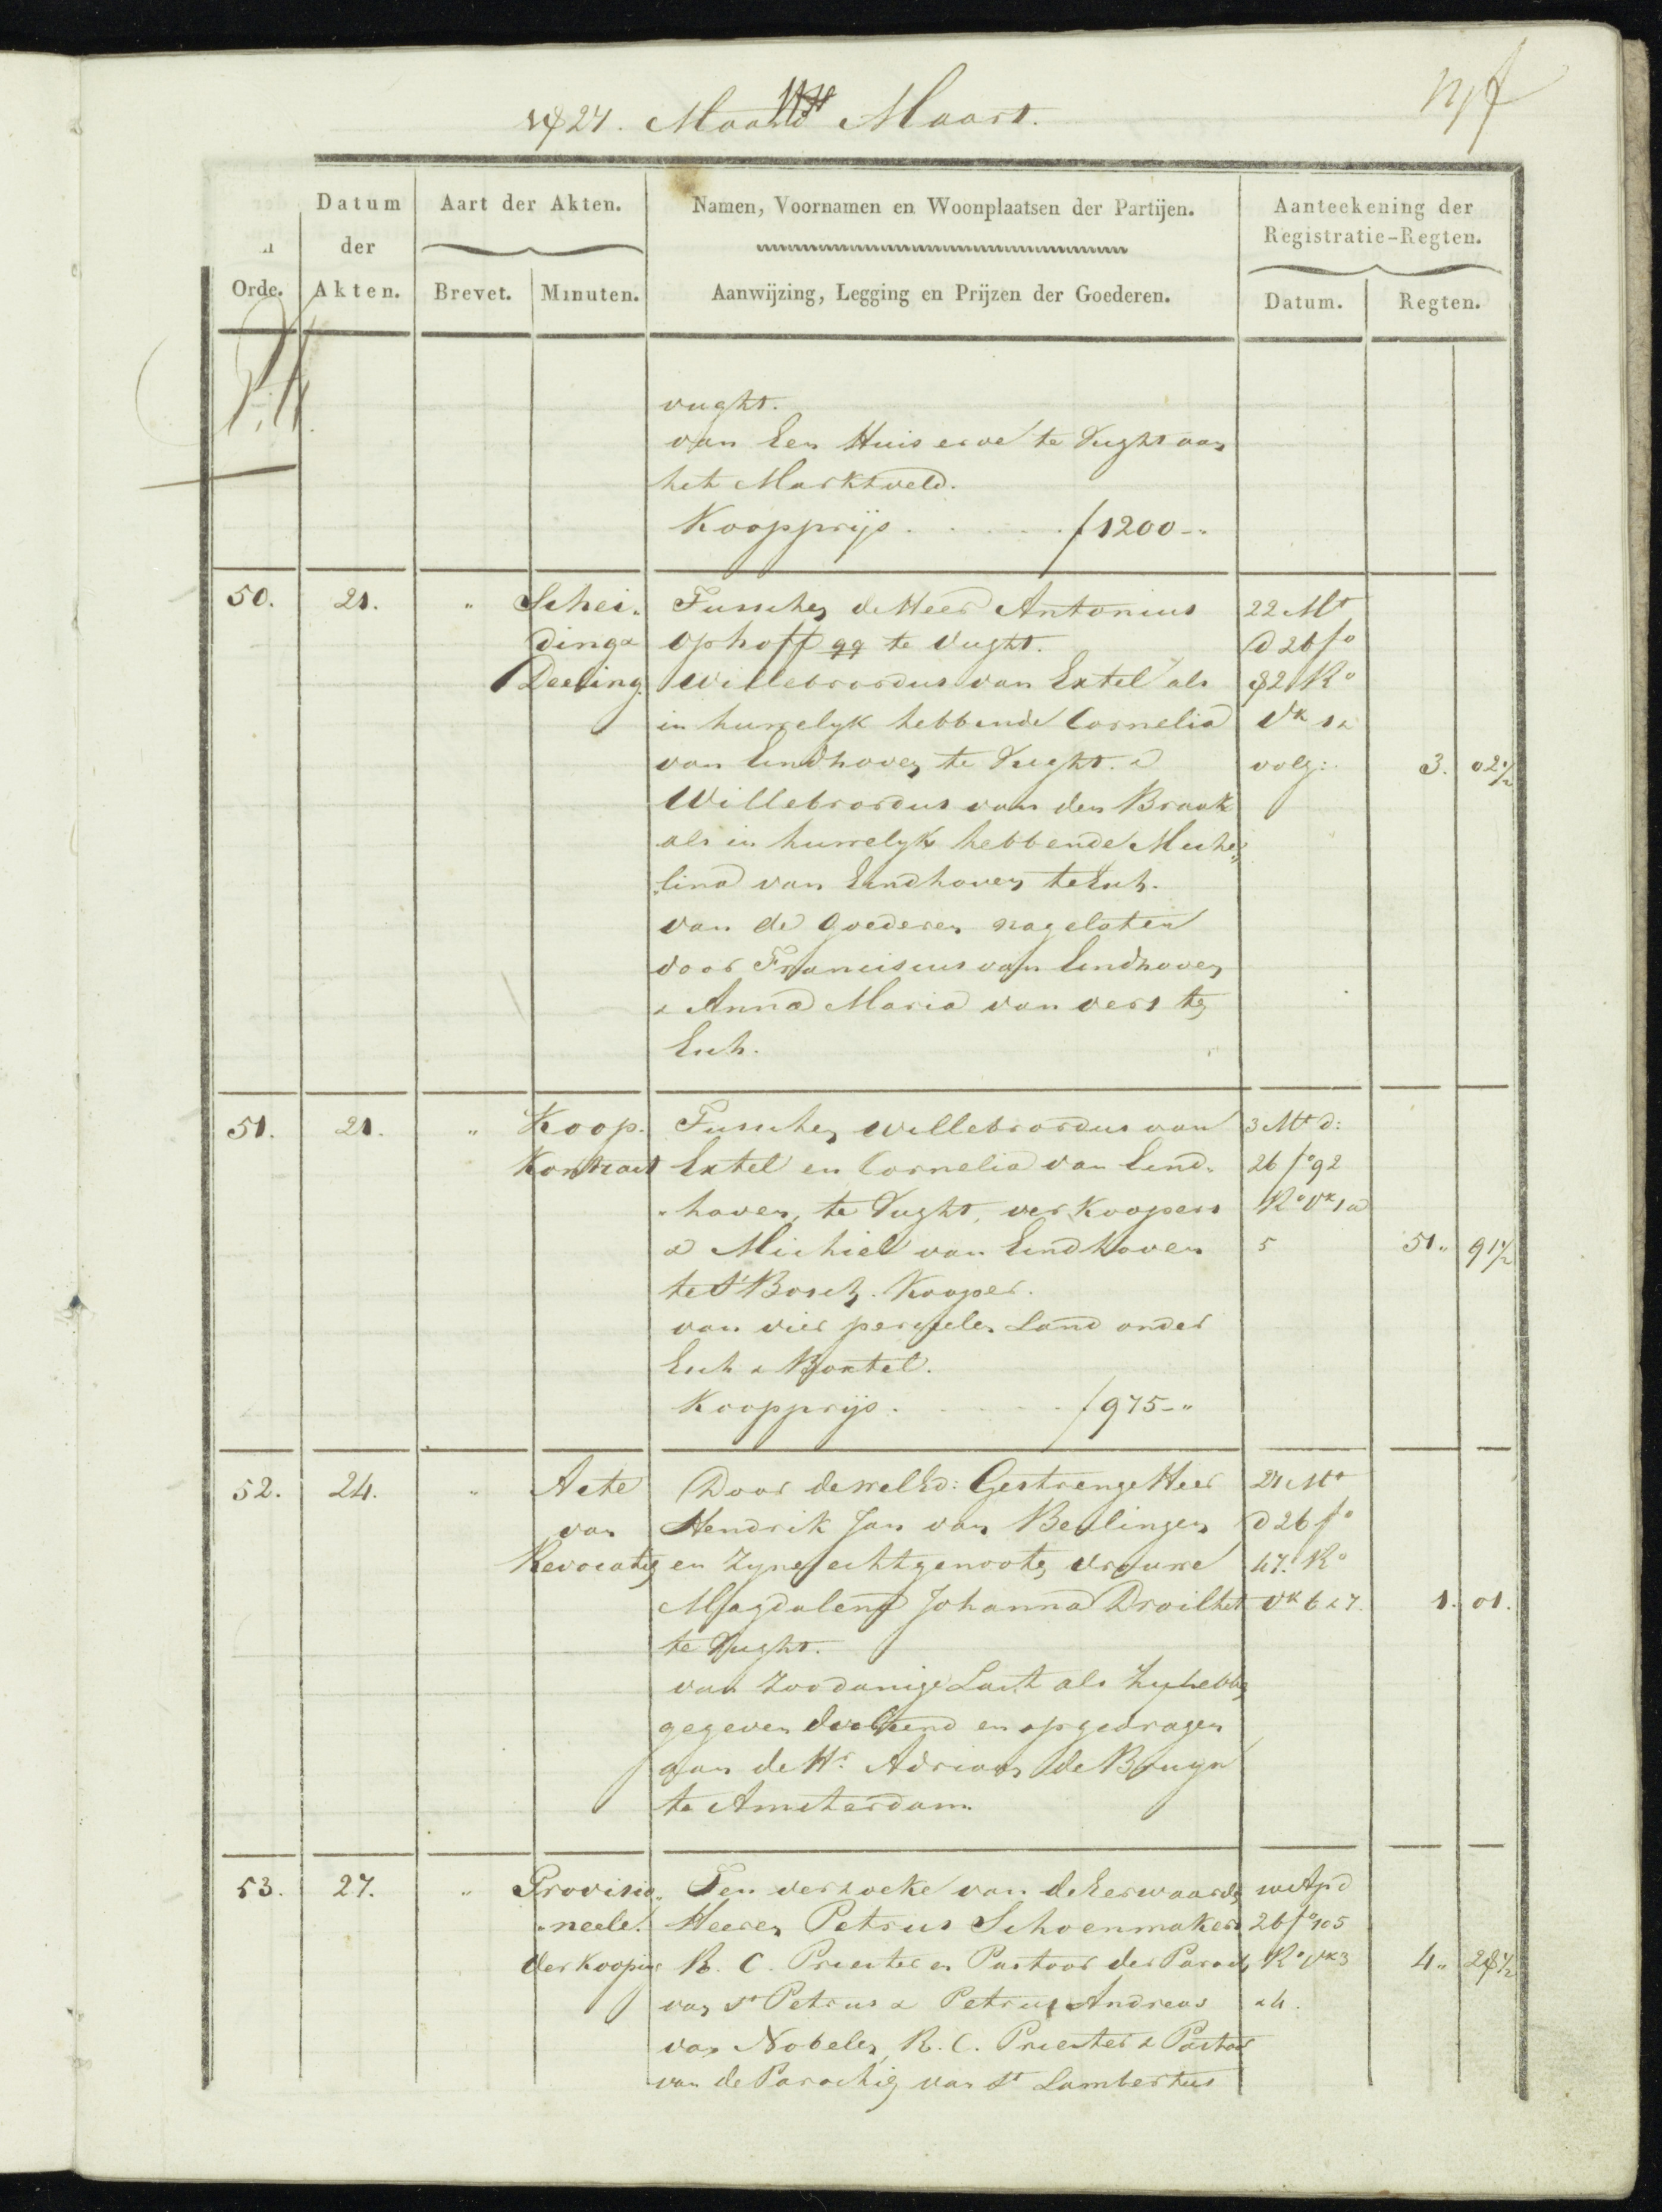 1827. Maand Maart.
Orde.
Datum der Akten.
Aart der Akten.
Brevet. Minuten.
Namen, Voornamen en Woonplaatsen der Partijen.
Aanwijzing, Legging en Prijzen der Goederen.
Aanteekening der Registratie-Regten.
Datum. Regten.
vught.
van Een Huis erve te Vught aan
het Marktveld.
Koopprijs . . . . . f 1200-"
50. 21. " Schei-
ding &
Deeling
Tusschen de Heer Antonius
Ophoff qq te Vught.
Willebrordus van Extel als
in huwelyk hebbende Cornelia
van Eindhoven te Vught. &
Willebrordus van den Braak
als in huwelyk hebbende Miche„
„lina van Eindhoven te Esch.
van de goederen nagelaten
door Franciscus van Eindhoven
& Anna Maria van vers te
Esch.
22 Mt
d 26 fo
82 Ro
Vk 1 &
volg: 3. 02½
51. 21. " Koop-
Kontract
Tusschen Willebrordus van
Extel en Cornelia van Eind-
„hoven, te Vught, verkoopers
& Michiel van Eindhoven
te s'Bosch. Kooper.
van vier perceelen Land onder
Esch & Boxtel.
Koopprijs . . . . . f 975-"
3 Mt d:
26 fo 92
Ro Vk 1 a
5 51" 91½
52. 24. " Acte
van
Revocatie
Door de welEd: Gestrenge Heer
Hendrik Jan van Beulingen
en zyne echtgenoote vrouwe
Magdalena Johanna Droilhet
te Vught.
van zoodanige Last als zy hebben
gegeven en opgedragen
aan de Hr. Adriaan de Bruyn
te Amsterdam.
d 26 fo
47. Ro
Vk 6 & 7. 1. 01.
53. 27. " Provisio„
„neele
Verkooping
Ten verzoeke van de Eerwaarde
Heeren Petrus Schoenmakers
R. C. Priester en Pastoor der Paroch
van St Petrus & Petrus Andreas
van Nobelen, R. C. Priester & Pastoor
van de Parochie van St Lambertus
26 fo 105
Ro Vk 3
& 4. 4" 28½